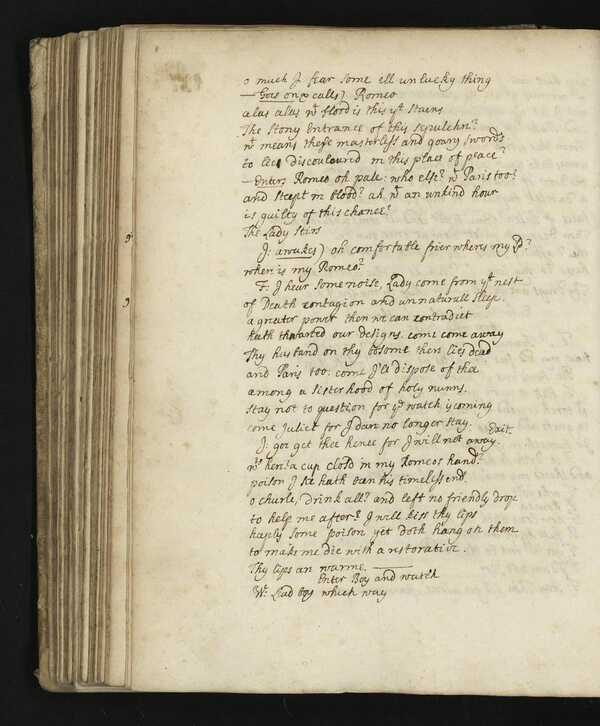 o much I fear some ill unlucky thing
— Goes on & calls) Romeo
alas alas wt blood is this yt stains
The Stony Entrance of this sepulchre?
wt means these masterless and goary swords
to lie discouloured in this place of peace?
— Enters Romeo oh pale: who else? wt Paris too?
and steept in blood? ah wt an unkind hour
is guilty of this chance?
The Lady Stirs
J: awakes) oh comfortable frier wheres my Ld?
where is my Romeo?
F: I hear some noise, Lady come from yt nest
of Death contagion and unnaturall sleep.
a greater power then we can contradict
hath thwarted our designs. come come away
Thy husband on thy bosome there lies dead
and Paris too: come I'le dispose of thee
among a sisterhood of holy nunns.
stay not to question for ye watch is coming
come Juliet for I dare no longer stay.
Exit.
J: goe get thee hence for I will not away.
wts here: a cup clos'd in my Romeos hand?
poison I see hath been his timeless end.
o churle, drink all? and left no friendly drop
to help me after? I will kiss thy lips
haply some poison yet doth hang on them
to make me die with a restorative.
Thy lips are warme. —
Enter Boy and watch
W: Lead boy which way